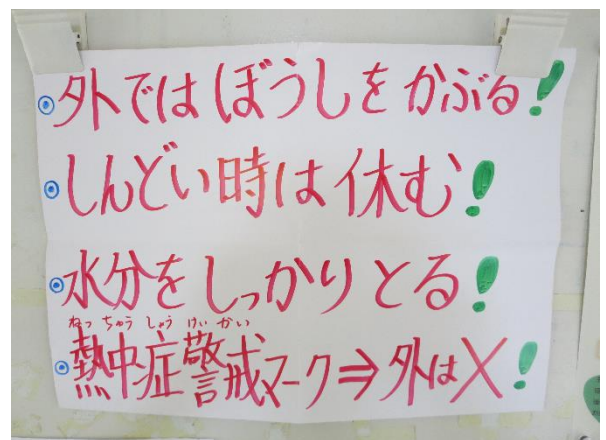 ◉外ではぼうしをかぶる!
◉しんどい時は休む!
◉水分をしっかりとる!
ねっちゅうしょうけいかい
◉熱中症警戒マーク⇒外は×!